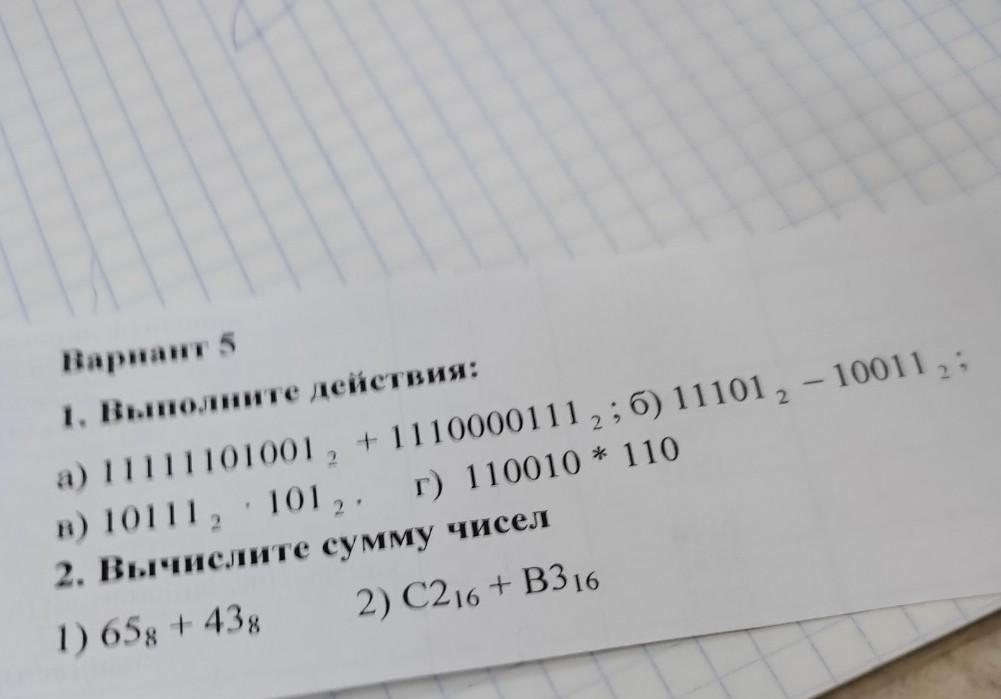 Вариант 5
1. Выполните действия:
а) 11111101001 ₂ + 1110000111 ₂ ; б) 11101 ₂ – 10011 ₂ ;
в) 10111 ₂ · 101 ₂ . г) 110010 * 110
2. Вычислите сумму чисел
1) 65₈ + 43₈ 2) C2₁₆ + B3₁₆